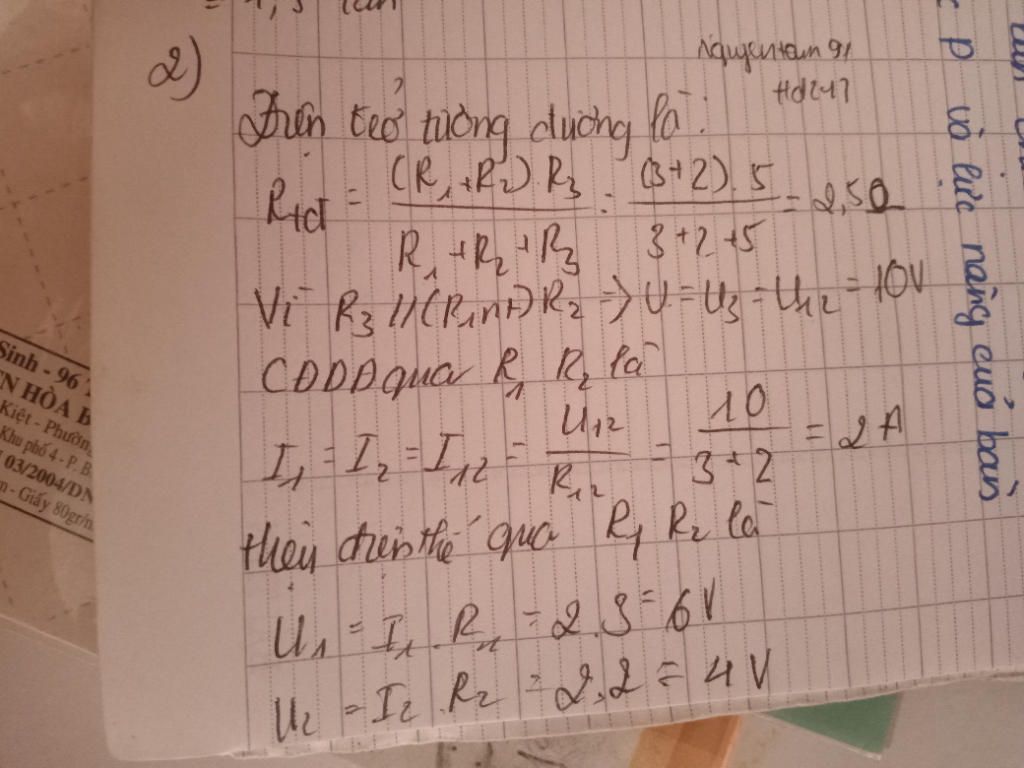 2)
Nguyentam 91
Hdc247
Điện trở tương đương là:
Rtđ = (R1+R2).R3 / R1+R2+R3 = (3+2).5 / 3+2+5 = 2,5Ω
Vì R3 // (R1 nt) R2 => U = U3 = U12 = 10V
CĐDĐ qua R1 R2 là
I1 = I2 = I12 = U12 / R12 = 10 / 3+2 = 2A
Hiệu điện thế qua R1 R2 là
U1 = I1.R1 = 2.3 = 6V
U2 = I2.R2 = 2.2 = 4V
P và lực nâng của bàn
Sinh - 96
N HÒA B
Kiệt - Phường
Khu phố 4 - P. B
03/2004/DN
m - Giấy 80gr/